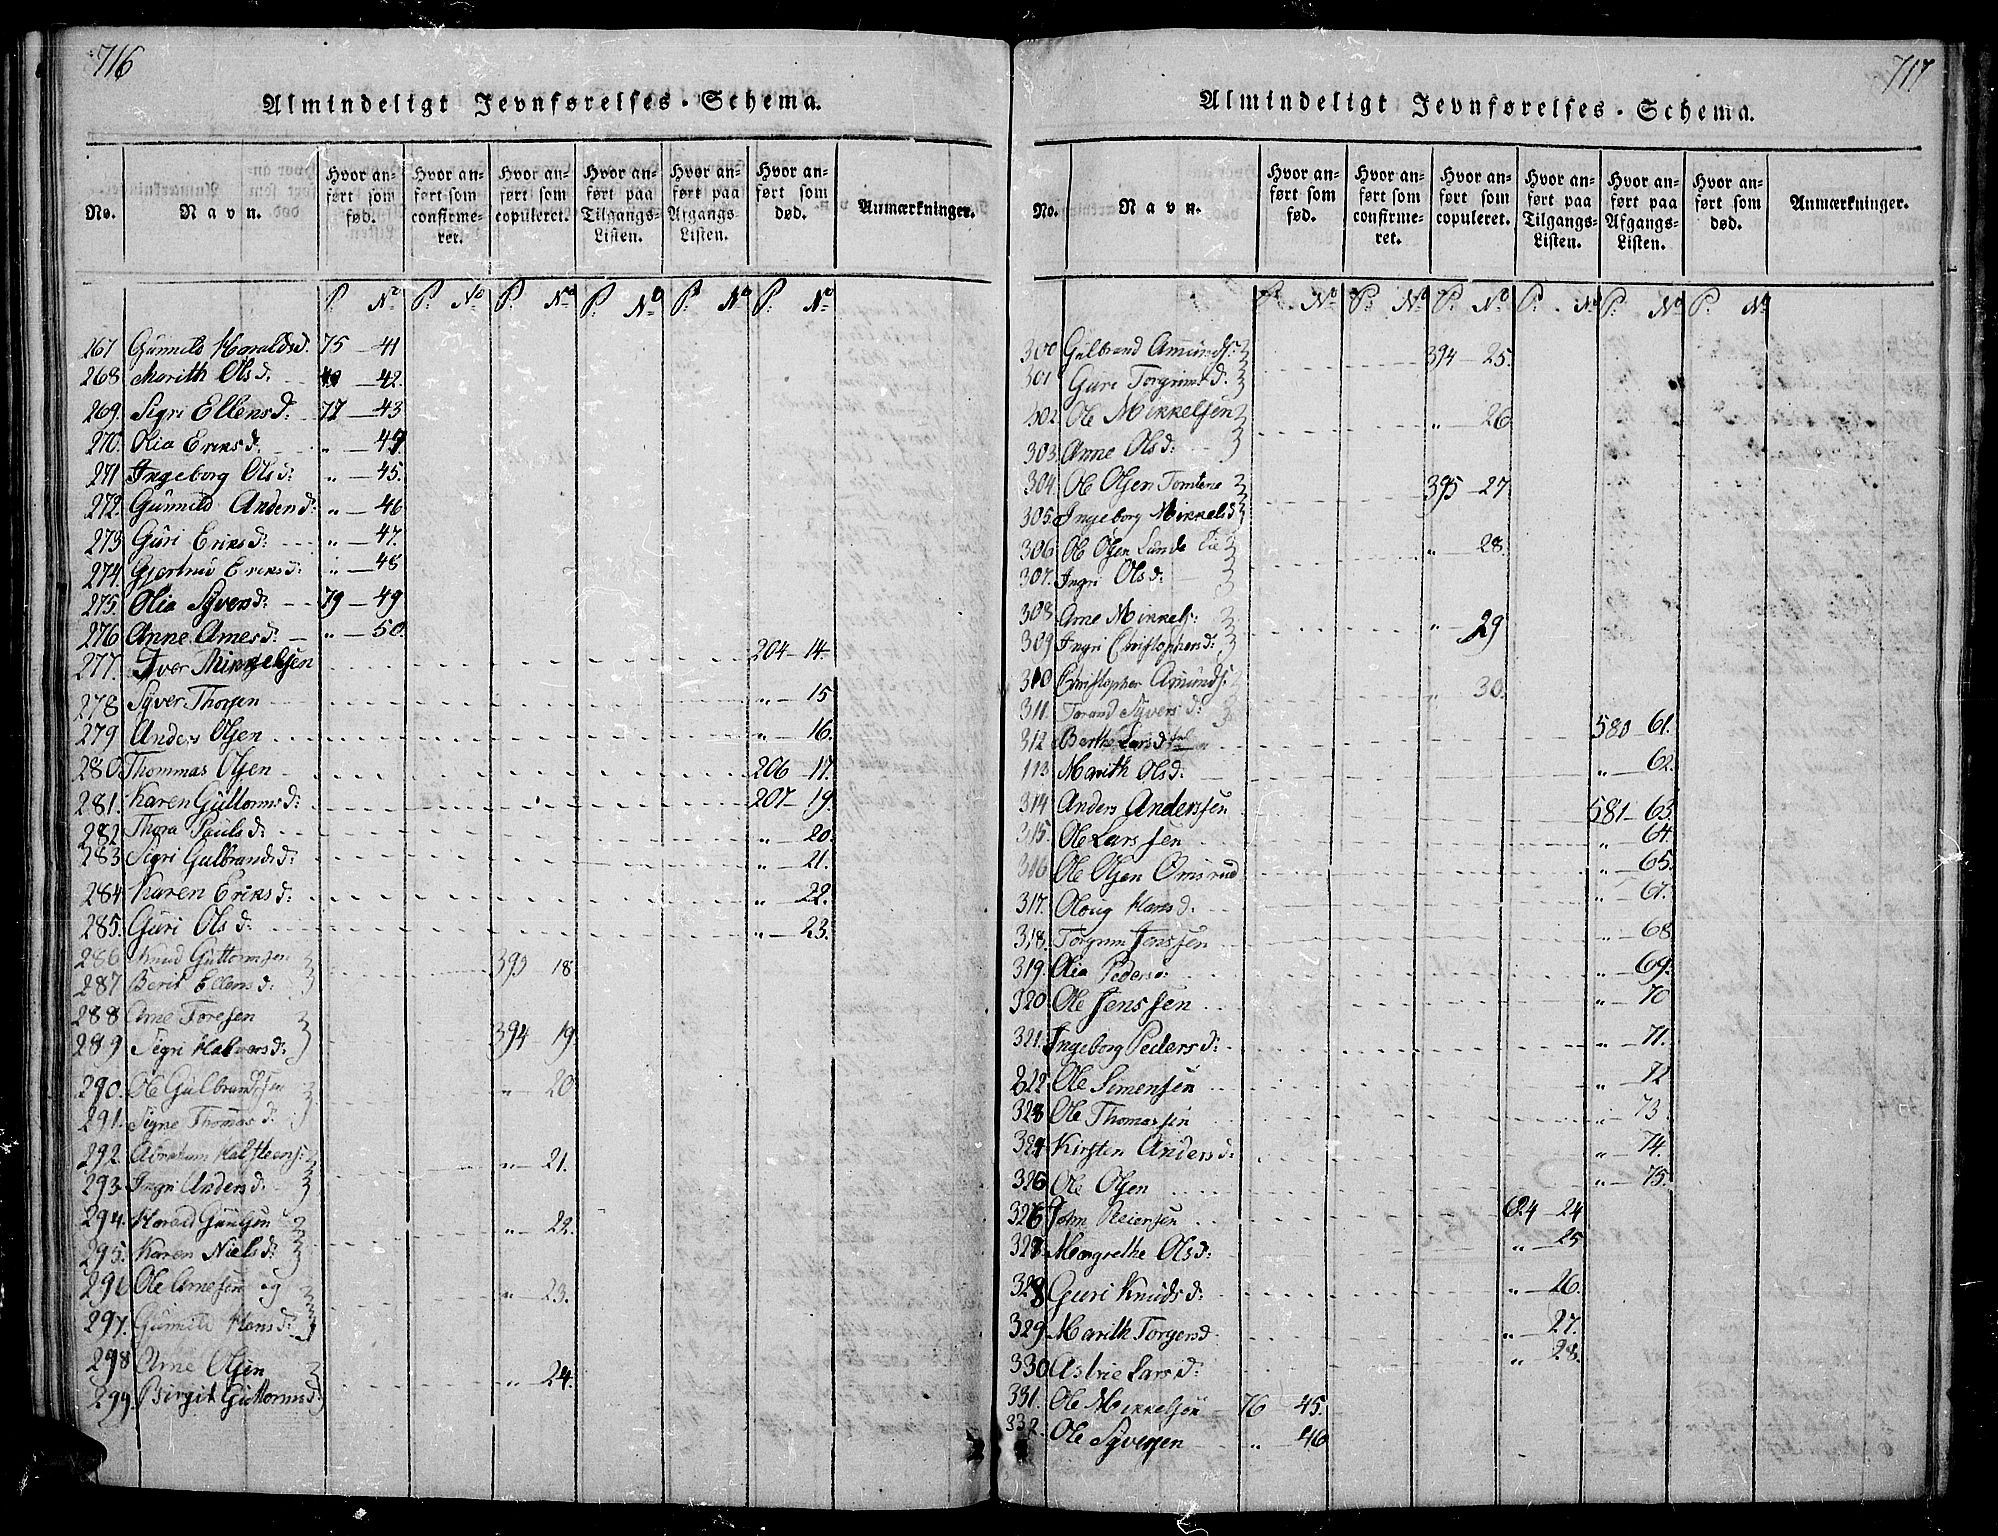 716
Almindeligt Jevnførelses-Schema.
No. Navn. Hvor anført som fød. Hvor anført som confirmeret. Hvor anført som copuleret. Hvor anført paa Tilgangs-Listen. Hvor anført paa Afgangs-Listen. Hvor anført som død. Anmærkninger.
P. No P. No P. No P. No P. No P. No
267 Gunnild Haraldsd. 75 — 41
268 Marith Olsd. — 42.
269. Sigri Ellensd: 77 — 43
270. Olia Eriksd. „ — 44
271 Ingeborg Olsd: „ — 45.
272. Gunnild Andersd: „ — 46
273 Guri Eriksd: „ — 47.
274. Gjertrud Eriksd: „ — 48
275. Olia Syversd: 79 — 49
276 Anne Arnesd: „ — 50.
277. Iver Mikkelsen 204 — 14
278 Syver Thorsen „ — 15
279 Anders Olsen „ — 16.
280 Thommas Olsen 206 — 17.
281. Karen Guttormsd: 207 — 19.
282. Thora Paulsd: „ — 20.
283. Sigri Gulbrandsd: „ — 21.
284 Karen Eriksd: „ — 22.
285. Guri Olsd: „ — 23.
286 Knud Guttormsen 393 18.
287 Berit Ellensd:
288 Arne Toresen
289. Sigri Halvorsd: 394 — 19.
290. Ole Gulbrandssen „ — 20
291. Signe Thomasd:
292. Abraham Halsteens: „ — 21.
293. Ingri Andersd.
294. Harald Gunlsen „ — 22.
295. Karen Nielsd:
296 Ole Arnesen og „ — 23.
297. Gunnild Hansd:
298 Arne Olsen „ — 24.
299. Birgit Guttormsd:
717
Almindeligt Jevnførelses-Schema.
No. Navn. Hvor anført som fød. Hvor anført som confirmeret. Hvor anført som copuleret. Hvor anført paa Tilgangs-Listen. Hvor anført paa Afgangs-Listen. Hvor anført som død. Anmærkninger.
P. No P. No P. No P. No P. No P. No
300 Gulbrand Amunds: 394 — 25.
301 Guri Torgrimsd:
302. Ole Mikkelsen „ — 26
303. Anne Olsd:
304. Ole Olsen Tomlene 395 — 27.
305. Ingeborg Mikkelsd:
306 Ole Olsen Lunde Eie „ — 28.
307. Ingri Olsd:
308 Arne Mikkels: „ — 29
309 Ingri Christophersd:
310 Christopher Amunds: „ 30.
311. Torand Syversd:
312 Berthe Larsd: 580 61.
113 Marith Olsd: „ — 62.
314 Anders Anderssen 581 — 63.
315. Ole Larssen „ — 64.
316 Ole Olsen Omsrud „ — 65.
317. Oloug Hansd. „ — 67.
318. Torgrim Jenssen „ — 68
319. Olia Pedersd: „ — 69.
320. Ole Jenssen „ — 70
321. Ingeborg Pedersd: „ — 71.
322. Ole Simensen „ — 72
323 Ole Thomassen „ — 73.
324 Kirsten Andersd: „ — 74.
325 Ole Olsen „ — 75.
326 John Reiersen 624 — 24
327 Margrethe Olsd: „ — 25
328 Guri Knudsd: „ — 26.
329 Marith Torgersd. „ — 27.
330 Astrie Larsd: „ — 28.
331. Ole Mikkelsen 76 45.
332. Ole Syversen „ — 46